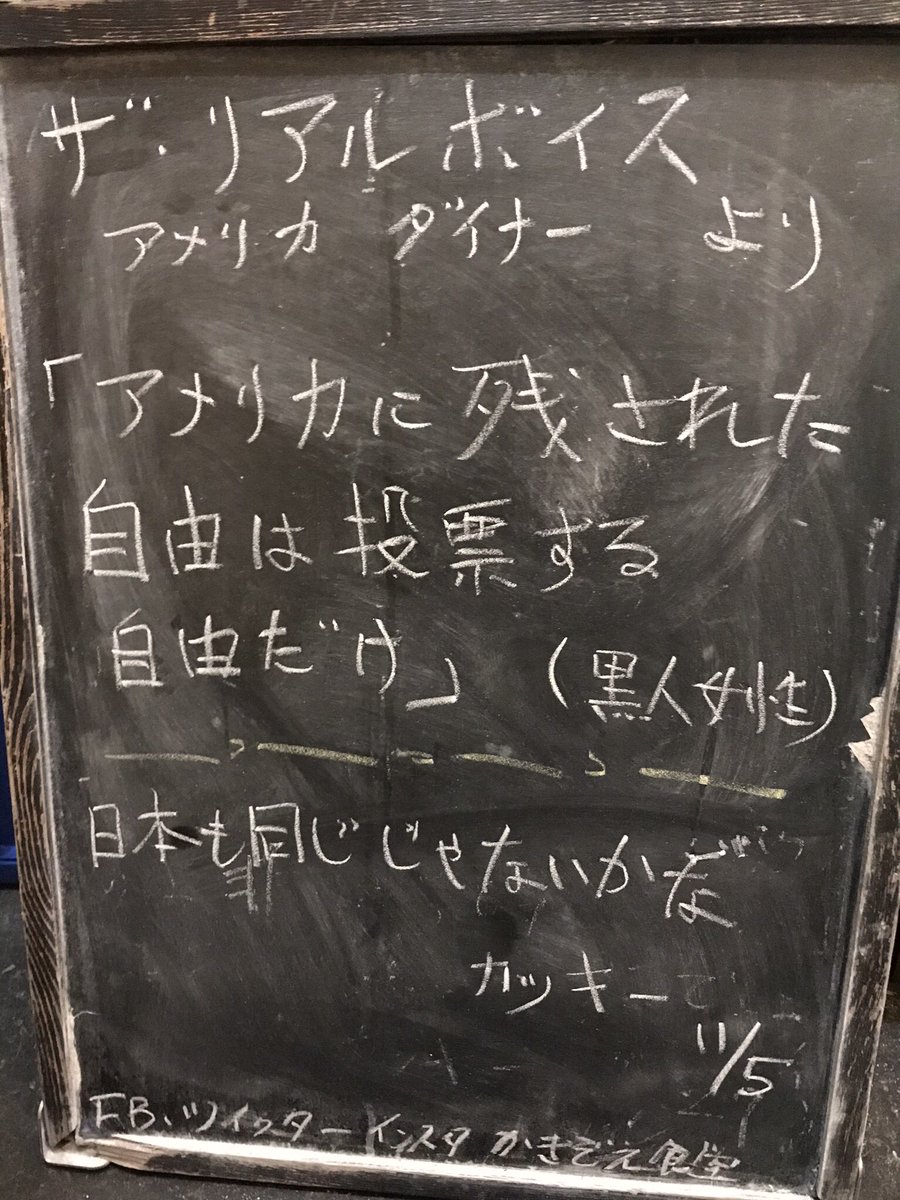 ザ・リアルボイス
アメリカ ダイナー より
「アメリカに残された
自由は投票する
自由だけ」 (黒人女性)
日本も同じじゃないかな
カッキー
11/5
FB、ツイッター インスタ かきぞえ食堂